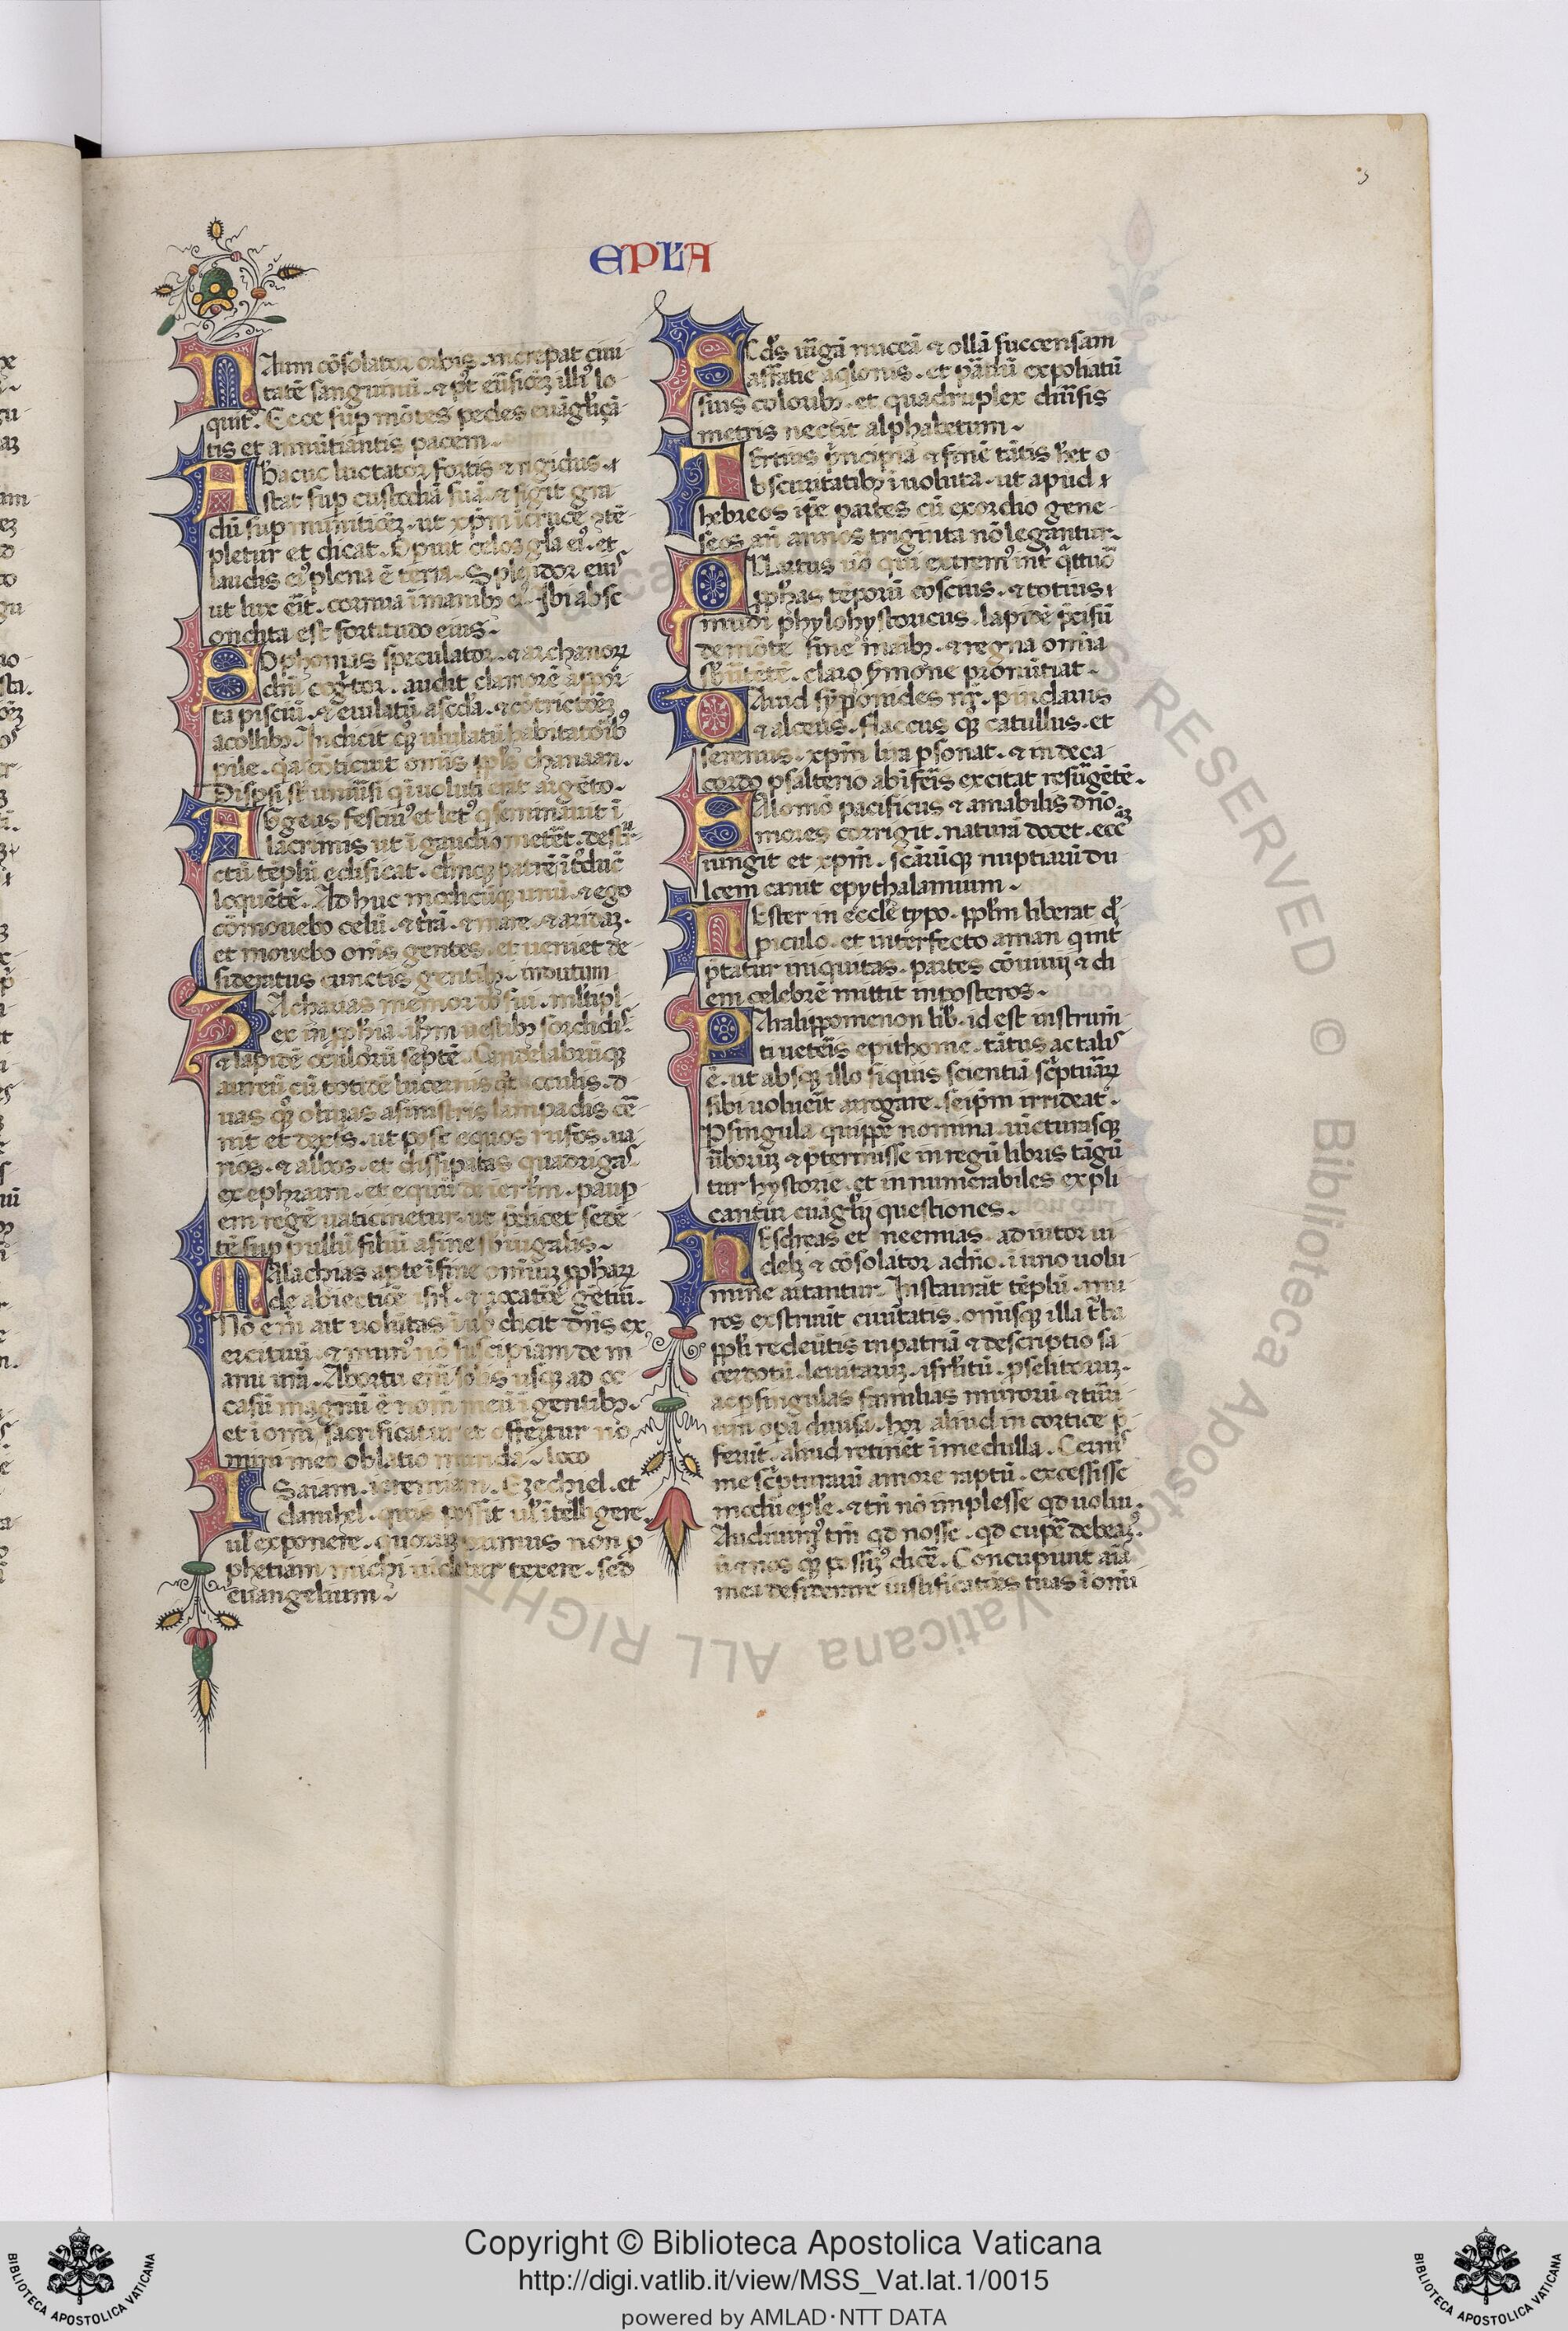 EPĽA
3
NAum cōsolator orbis. increpat ciui-
tatē sanguinū. ⁊ pꝰt eūsiōeꝫ illiꝰ lo-
quitᷣ. Ecce sup mōtes pedes euāgľiçā-
tis et annūtiantis pacem.
ABacuc luctator fortis ⁊ rigidus.
stat sup custodiā suā. ⁊ figit gra-
dū sup munitiōeꝫ. ut xp̄m ī cruce 9tē-
pletur et dicat. Opuit celos gľa eiꝰ. et
laudis eiꝰ plena ē terra. Splēdor eiuˢ
ut lux eīt. cornua ī manibꝫ eiꝰ. Ibi absc
ondita est fortitudo eius.
SOphonias speculator. ⁊ archanoꝝ
dn̄i cogᷓtor. audit clamorē a por-
ta pisciū. ⁊ eiulatū a scďa. ⁊ cōtritiōeꝫ
a collibꝫ. Indicit qꝫ ululatū habitatōībꝰ
pile. qꝛ cōticuit omīs ppľs chanaan.
Dispsi sūt uniūsi qͥ īuoluti erāt argēto.
AGgeus festiuꝰ et letꝰ q seminauit ī
lacrimis ut ī gaudio metēt. destru
ctū tēplū edificat. dūmqꝫ patrē ītᷣducit
loquētē. Ad huc modicūqꝫ unū. ⁊ ego
cōmouebo celū. ⁊ tᷣrā. ⁊ mare. ⁊ aridaꝫ.
et mouebo oms gentes. et ueniet de-
sideratus cunctis gentibꝫ. indutum
ZAcharias memor dn̄i sui. mľtipľ
ex in pphīa. ihm uestibꝫ sordidiˢ.
⁊ lapidē oculorū septē. Candelabrūqꝫ
aureū cū totidē lucernis qͦt oculis. d
uas qꝫ oliuas a sinistris lampadis cē-
nit et dextᷣs. ut post equos rufos. ua-
rios. ⁊ albos. et dissipatas quadrigaˢ
ex ephraim. et equū de ierľm. paup
em regē uaticinetur. ut p̄dicet sedē-
tē sup pullū filiū asine sbiugalis.
MAlachias apte ī fine omniuꝫ pphaꝝ
de abiectiōe isrľ. ⁊ uocatōe gētiū.
Nō ē m̄ ait uolūtas ī uob̄ dicit dn̄s ex
ercituū. ⁊ munꝰ nō suscipiam de m
anu urā. Ab ortu em̄ solis usqꝫ ad oc-
casū magnū ē nom̄ meū ī gentibꝫ.
et ī om̄i sacrificatur et offertur no
mini meo oblatio munda. loco
ISaiam. ieremiam. Ezechiel. et
danihel. quis possit uľ ītelligere.
uľ exponere. quoruꝫ primus non p
phetiam michi uidetur texere. sed
euangelium.
SEcďs uirgā nuceā ⁊ ollā succensam
a ffatie aqlonis. et pardū expoliatū
suis coloribꝫ. et quadruplex diuīsis
metris nectit alphabetum.
TErtius prīncipia ⁊ finē tātis het o
bscuritatibꝫ īuoluta. ut apud
hebreos ip̄e partes cū exordio gene-
seos añ annos triginta nō legantur.
QUartus uō qui extremꝰ intᷣ qͣttuō
pphas tēporū cōscius. ⁊ totius
mūdi phylohystoricus. lapidē p̄cisū
de mōte sine maībꝫ. ⁊ regna omīa
sbuertētē. claro sꝰmone pronūtiat.
DAuid symponides nr̄. pindarus
⁊ alceus. flaccus qꝫ catullus. et
serenus. xpm lira psonat. ⁊ in deca
cordo psalterio ab īfeīs excitat resūgētē.
SAlomō pacificus ⁊ amabilis dn̄o
mores corrigit. naturā docet. ecc̄aꝫ
iungit et xpm. scārūqꝫ nuptiarū du
lcem canit epythalamium.
hESter in eccľe typo. ppľm liberat dͤ
piculo. et interfecto aman q int
p̄tatur iniquitas. partes cōuiuij ⁊ di
em celebrē mittit in posteros.
PAralippomenon liƀ. id est instrum̄
ti ueteīs epithome. tātus ac talis
ē. ut absqꝫ illo si quis scientiā scͥptuaꝝ
sibi uolueīt arrogare. seip̄m irrideat.
Psingula quippe nomina. iūcturasqꝫ
ūborū ⁊ p̄termisse in regū libris tāgū
tur hystorie. et innumerabiles expli
cantur euāgľij questiones.
NESdras et neemias. adiutor ui
delꝫ ⁊ cōsolator a dn̄o. ī uno uolu-
mine artantur. Instaurāt tēplū. mu-
ros exstruūt ciuitatis. omīsqꝫ illa tᷣba
ppľi redeūtis in patriā ⁊ descriptio sa-
cerdotū. leuitaruꝫ. isrľitū. pselitoruꝫ.
ac psingulas familias muroru ⁊ turri-
um opa diuisa. hoꝝ aliud in cortice p̄
ferūt. aliud retinēt ī medulla. Cerniˢ
me scͥpturarū amore raptū. excessisse
modū epľe. ⁊ tn̄ nō implesse qd uolui.
Audiuimꝰ tm̄ qd nosse. qd cupē debeāꝫ.
ū ⁊ nos qꝫ possimꝰ dicē. Concupiuit aīa
mea desiderare iustificatiōes tuas ī omi
Copyright © Biblioteca Apostolica Vaticana
http://digi.vatlib.it/view/MSS_Vat.lat.1/0015
powered by AMLAD·NTT DATA
BIBLIOTECA APOSTOLICA VATICANA
BIBLIOTECA APOSTOLICA VATICANA